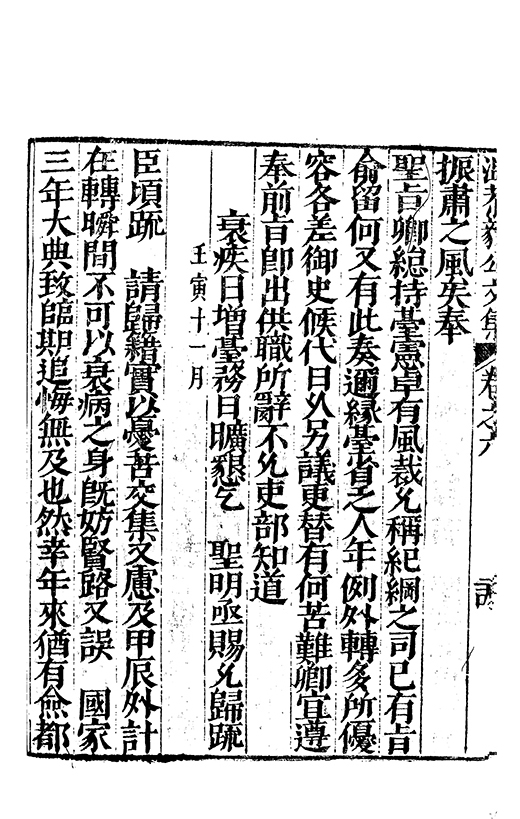 溫恭毅公文集 卷之六
振肅之風矣奉
聖旨卿總持臺憲卓有風裁允稱紀綱之司已有旨
俞留何又有此奏邇緣臺省乏人年例外轉多所優
容各差御史候代日久另議更替有何苦難卿宜遵
奉前旨卽出供職所辭不允吏部知道
衰疾日增臺務日曠懇乞 聖明亟賜允歸疏
壬寅十一月
臣頃疏 請歸籍實以憂苦交集又慮及甲辰外計
在轉瞬間不可以衰病之身旣妨賢路又誤 國家
三年大典致臨期追悔無及也然幸年來猶有僉都